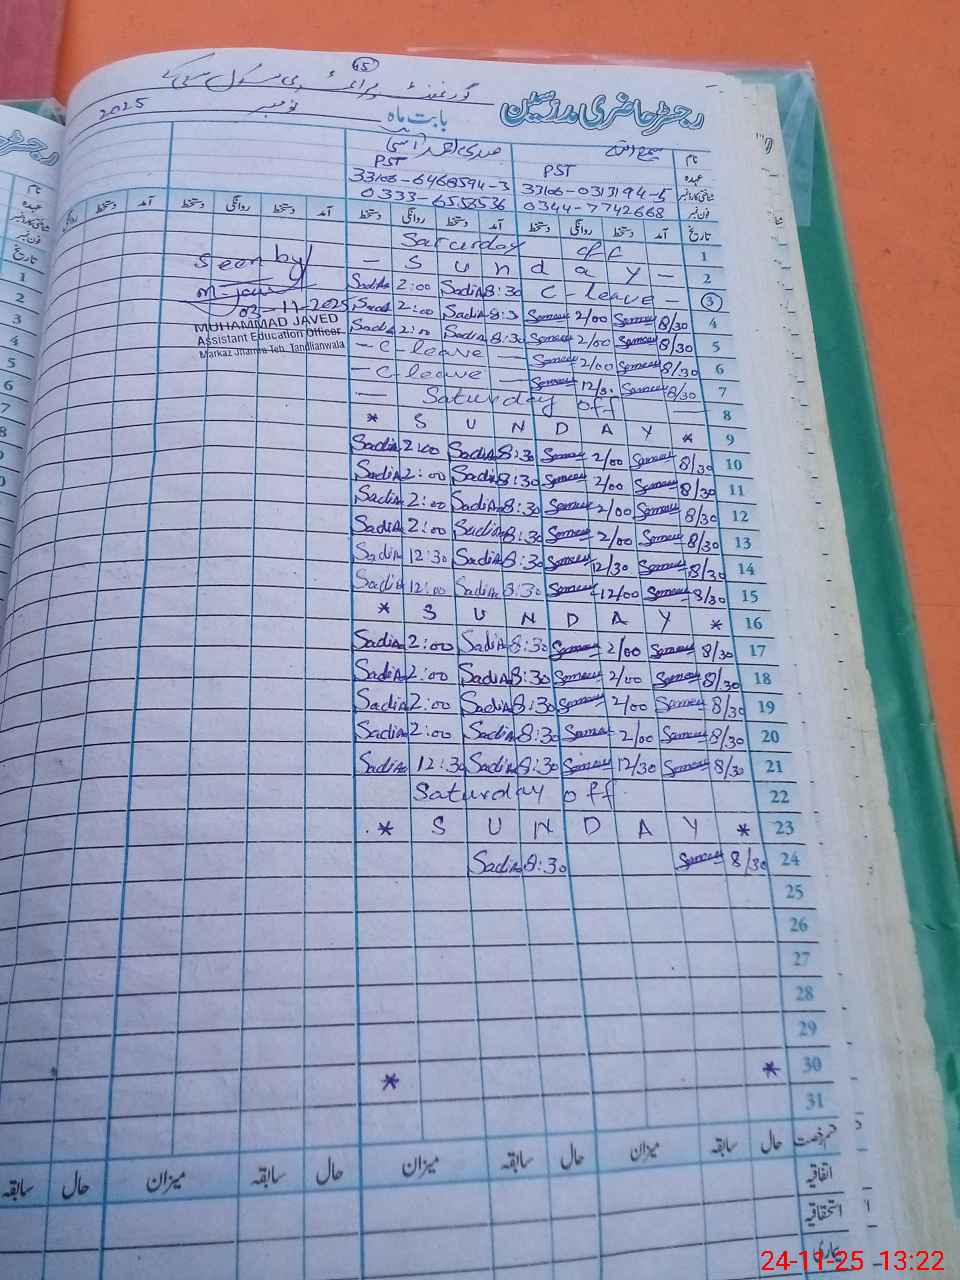 65
گورنمنٹ پرائمری سکول
رجسٹر حاضری مدرسین
بابت ماہ نومبر 2025
نام
عہدہ PST PST
شناختی کارڈ نمبر 33106-0313194-5 33106-6468594-3
فون نمبر 0344-7742668 0333-6558536
تاریخ آمد دستخط روانگی دستخط آمد دستخط روانگی دستخط آمد دستخط روانگی دستخط آمد دستخط روانگی
Saturday off 1
- S u n d a y - 2
Sadia 2:00 Sadia 8:30 C - leave - 3
Sadia 2:00 Sadia 8:3 2/00 8/30 4
Sadia 2:00 Sadia 8:30 2/00 8/30 5
- C - leave - 2/00 8/30 6
- C - leave - 12/30 8/30 7
- Saturday off 8
* S U N D A Y * 9
Sadia 2:00 Sadia 8:30 2/00 8/30 10
Sadia 2:00 Sadia 8:30 2/00 8/30 11
Sadia 2:00 Sadia 8:30 2/00 8/30 12
Sadia 2:00 Sadia 8:30 2/00 8/30 13
Sadia 12:30 Sadia 8:30 12/30 8/30 14
Sadia 12:00 Sadia 8:30 12/00 8/30 15
* S U N D A Y * 16
Sadia 2:00 Sadia 8:30 2/00 8/30 17
Sadia 2:00 Sadia 8:30 2/00 8/30 18
Sadia 2:00 Sadia 8:30 2/00 8/30 19
Sadia 2:00 Sadia 8:30 2/00 8/30 20
Sadia 12:30 Sadia 8:30 12/30 8/30 21
Saturday off 22
* S U N D A Y * 23
Sadia 8:30 8/30 24
25
26
27
28
29
* * 30
31
قسم رخصت حال سابقہ میزان حال سابقہ میزان حال سابقہ میزان حال سابقہ
اتفاقیہ
استحقاقیہ
بیماری
Seen by
03-11-2025
MUHAMMAD JAVED
Assistant Education Officer
Markaz Jhamra Teh. Tandlianwala
نام
عہدہ
شناختی کارڈ نمبر
فون نمبر
تاریخ
1
2
3
4
5
6
7
8
9
24-11-25 13:22